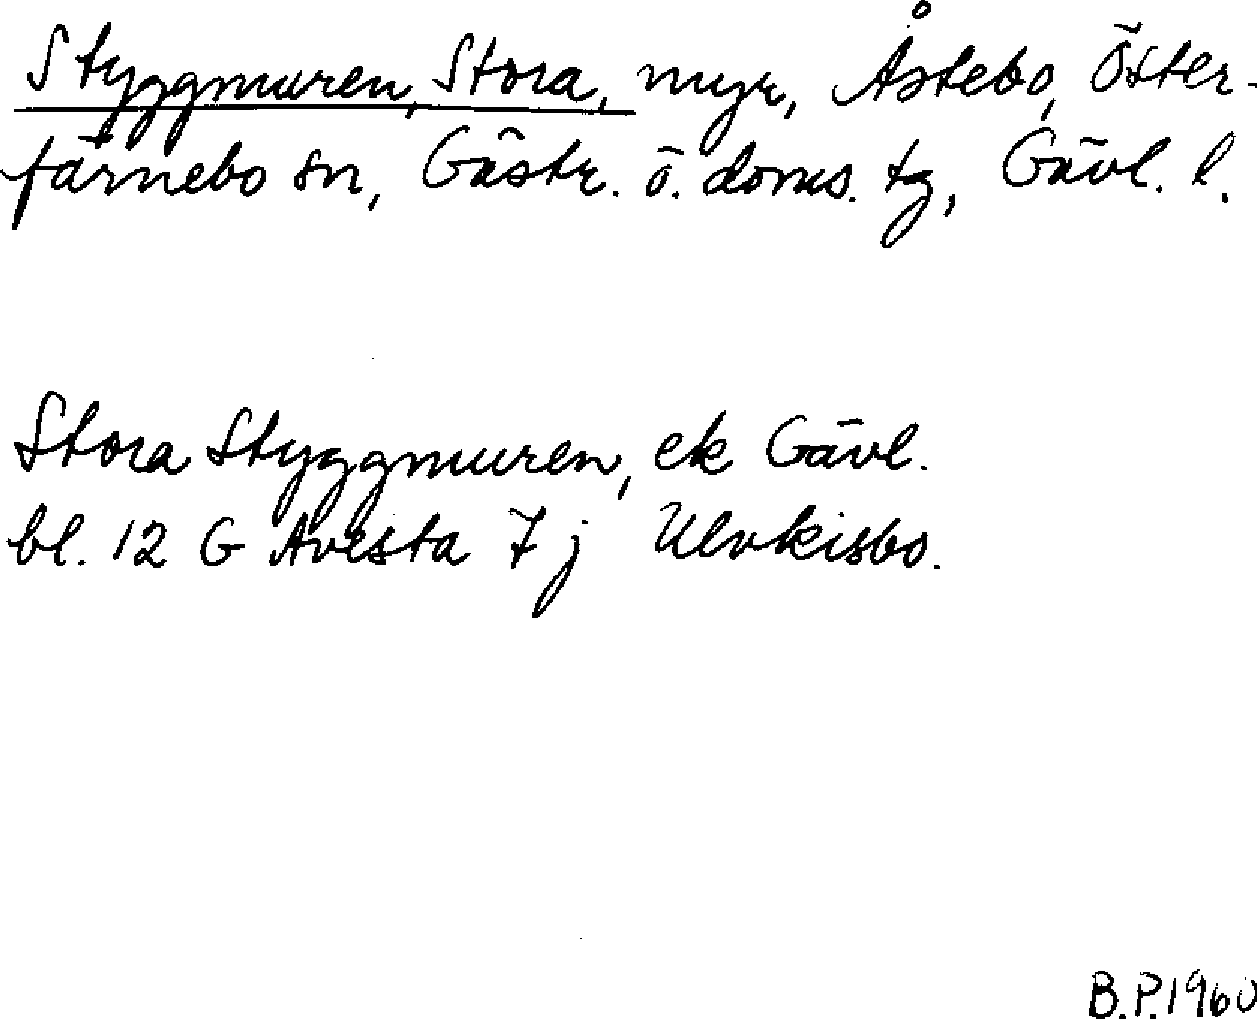 Styggmuren, Stora, myr, Åstebo, Öster-
färnebo sn, Gästr. ö. doms. tg, Gävl. l.
Stora Styggmuren, ek Gävl.
bl. 12 G Avesta 7 j Ulvkisbo.
B.P. 1960